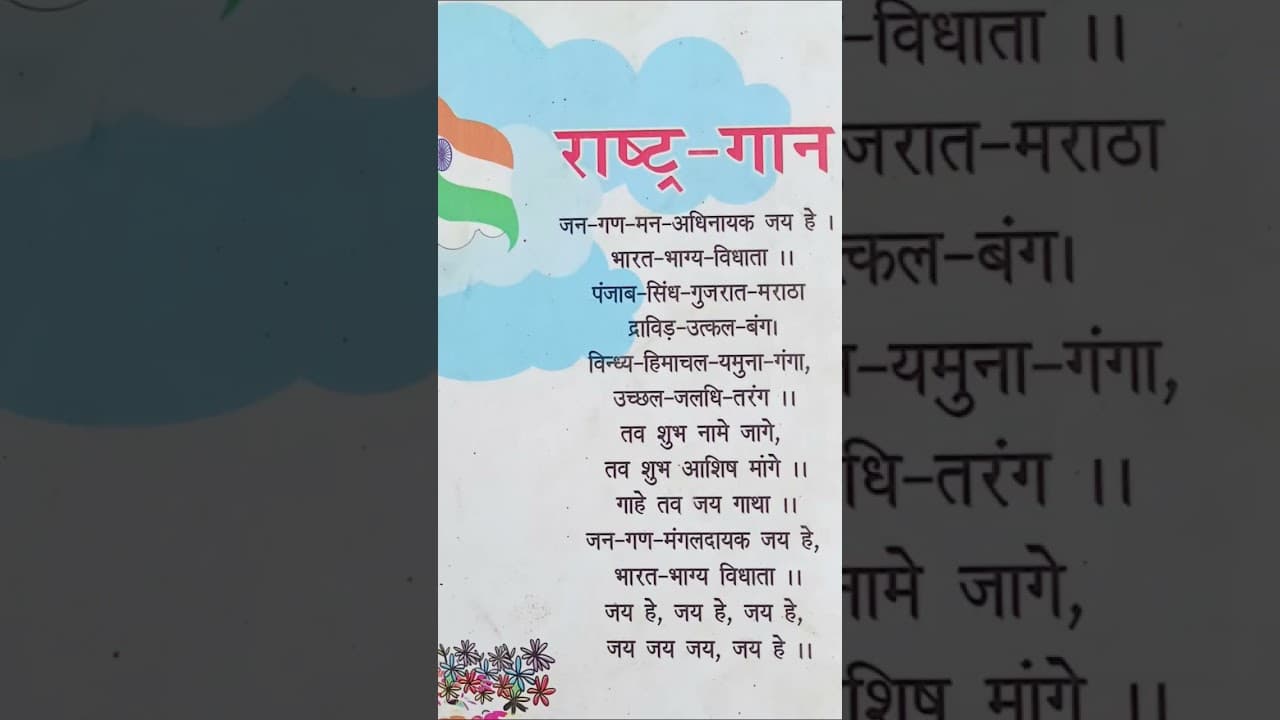 राष्ट्र-गान
जन-गण-मन-अधिनायक जय हे ।
भारत-भाग्य-विधाता ।।
पंजाब-सिंध-गुजरात-मराठा
द्राविड़-उत्कल-बंग।
विन्ध्य-हिमाचल-यमुना-गंगा,
उच्छल-जलधि-तरंग ।।
तव शुभ नामे जागे,
तव शुभ आशिष मांगे ।।
गाहे तव जय गाथा ।।
जन-गण-मंगलदायक जय हे,
भारत-भाग्य विधाता ।।
जय हे, जय हे, जय हे,
जय जय जय, जय हे ।।
-विधाता ।।
जरात-मराठा
कल-बंग।
-यमुना-गंगा,
धि-तरंग ।।
नामे जागे,
शिष मांगे ।।